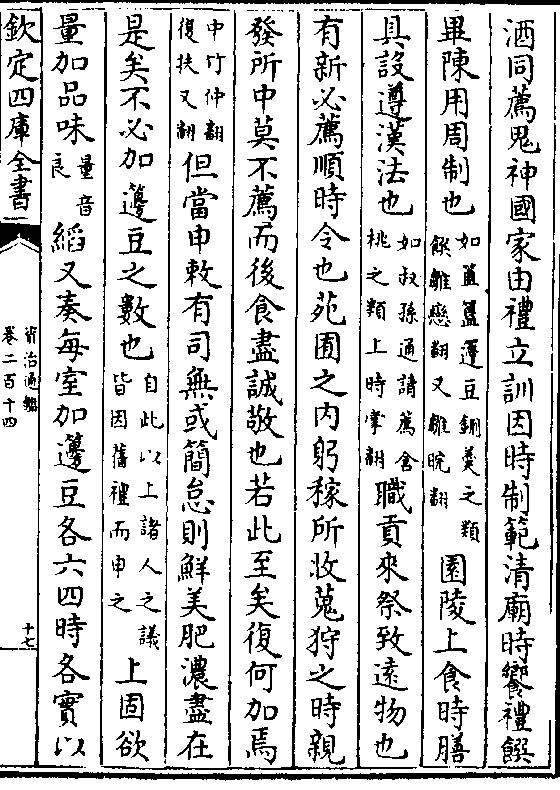 酒同薦鬼神國家由禮立訓因時制範清廟時饗禮饌
畢陳用周制也如簠簋籩豆鉶羹之類饌雛戀翻又雛晥翻園陵上食時膳
具設遵漢法也如叔孫通請薦含桃之類上時掌翻職貢來祭致遠物也
有新必薦順時令也苑囿之内躬稼所收蒐狩之時親
發所中莫不薦而後食盡誠敬也若此至矣復何加焉
中竹仲翻復扶又翻但當申敕有司無或簡怠則鮮美肥濃盡在
是矣不必加籩豆之數也自此以上諸人之議皆因舊禮而申之上固欲
量加品味量音良縚又奏每室加籩豆各六四時各實以
欽定四庫全書
資治通鑑
卷二百十四
十七